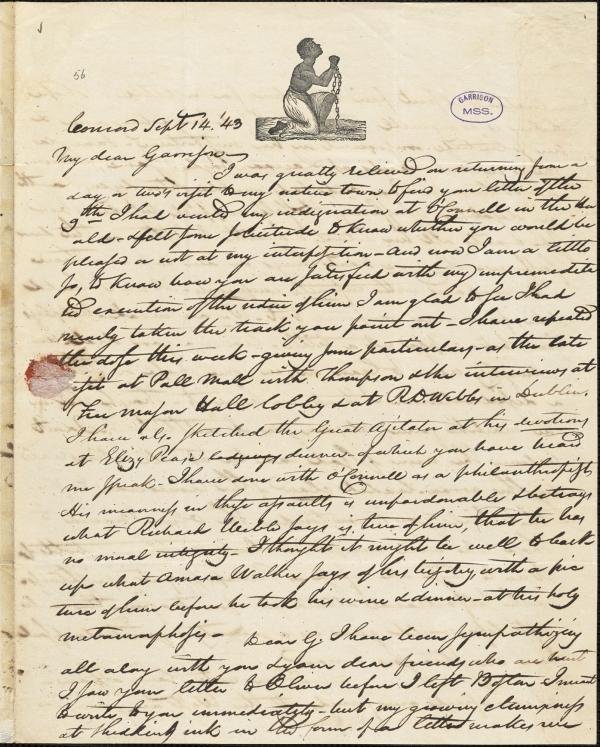 56
GARRISON
MSS.
Concord Sept 14. '43
My dear Garrison—
I was greatly relieved on returning from a
day or two's visit to my native town to find your letter of the
9th. I had vented my indignation at O'Connell in the Her
ald - & felt some solicitude to know whether you would be
pleased or not at my interposition - and now I am a little
so, to know how you are satisfied with my unpremeditat
ed execution of the notice of him. I am glad to see I had
nearly taken the track you point out - I have repeated
the dose this week - giving some particulars - as the late
at Pall Mall with Thompson & the interviews at
Free mason Hall lobby & at R. D. Webb's in Dublin.
I have also sketched the Great Agitator at his devotions
at Eliz. Pease dinner - of which you have heard
me speak - I have done with O'Connell as a philanthropist
His meanness in these assaults is unpardonable & betrays
what Richard Webb says is true of him, that he has
no moral integrity - I thought it might be well to back
up what Amasa Walker says of his bigotry, with a pic
ture of him before he took his wine & dinner - at his holy
metamorphosis -
Dear G. I have been sympathizing
all along with you & your dear friends who are hurt
I saw your letter to Oliver before I left Boston & meant
to write to you immediately - but my growing clumsiness
at thinking ink in the form of a letter makes me